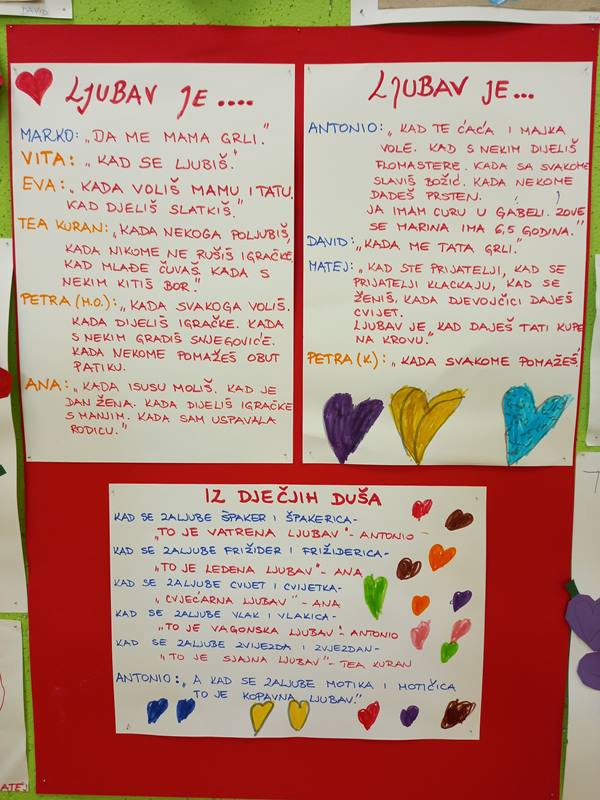 DAVID
LJUBAV JE ....
MARKO: „DA ME MAMA GRLI."
VITA: „KAD SE LJUBIŠ."
EVA: „KADA VOLIŠ MAMU I TATU,
KAD DJELIŠ SLATKIŠ."
TEA KURAN: „KADA NEKOGA POLJUBIŠ,
KADA NIKOME NE RUŠIŠ IGRAČKE,
KAD MLAĐE ČUVAŠ. KADA S
NEKIM KITIŠ BOR."
PETRA (M.O.): „KADA SVAKOGA VOLIŠ.
KADA DIJELIŠ IGRAČKE. KADA
S NEKIM GRADIŠ SNJEGOVIĆE.
KADA NEKOME POMAŽEŠ OBUT
PATIKU."
ANA: „KADA ISUSU MOLIŠ. KAD JE
DAN ŽENA. KADA DIJELIŠ IGRAČKE
S MANJIM. KADA SAM USPAVALA
RODICU."
LJUBAV JE...
ANTONIO: „KAD TE ĆAĆA I MAJKA
VOLE. KAD S NEKIM DIJELIŠ
FLOMASTERE. KADA SA SVAKOME
SLAVIŠ BOŽIĆ. KADA NEKOME
DADEŠ PRSTEN.
JA IMAM CURU U GABELI. ZOVE
SE MARINA IMA 6,5 GODINA."
DAVID: „KADA ME TATA GRLI."
MATEJ: „KAD STE PRIJATELJI, KAD SE
PRIJATELJI KLACKAJU, KAD SE
ŽENIŠ. KADA DJEVOJČICI DAJEŠ
CVIJET.
LJUBAV JE KAD DAJEŠ TATI KUPE
NA KROVU."
PETRA (K.): „KADA SVAKOME POMAŽEŠ"
IZ DJEČJIH DUŠA
KAD SE ZALJUBE ŠPAKER I ŠPAKERICA-
„TO JE VATRENA LJUBAV"- ANTONIO
KAD SE ZALJUBE FRIŽIDER I FRIŽIDERICA-
„TO JE LEDENA LJUBAV"- ANA
KAD SE ZALJUBE CVIJET I CVIJETKA-
„CVJEĆARNA LJUBAV" - ANA
KAD SE ZALJUBE VLAK I VLAKICA-
„TO JE VAGONSKA LJUBAV"- ANTONIO
KAD SE ZALJUBE ZVIJEZDA I ZVJEZDAN-
„TO JE SJAJNA LJUBAV"- TEA KURAN
ANTONIO: „A KAD SE ZALJUBE MOTIKA I MOTIČICA
TO JE KOPAVNA LJUBAV."
ATEJ